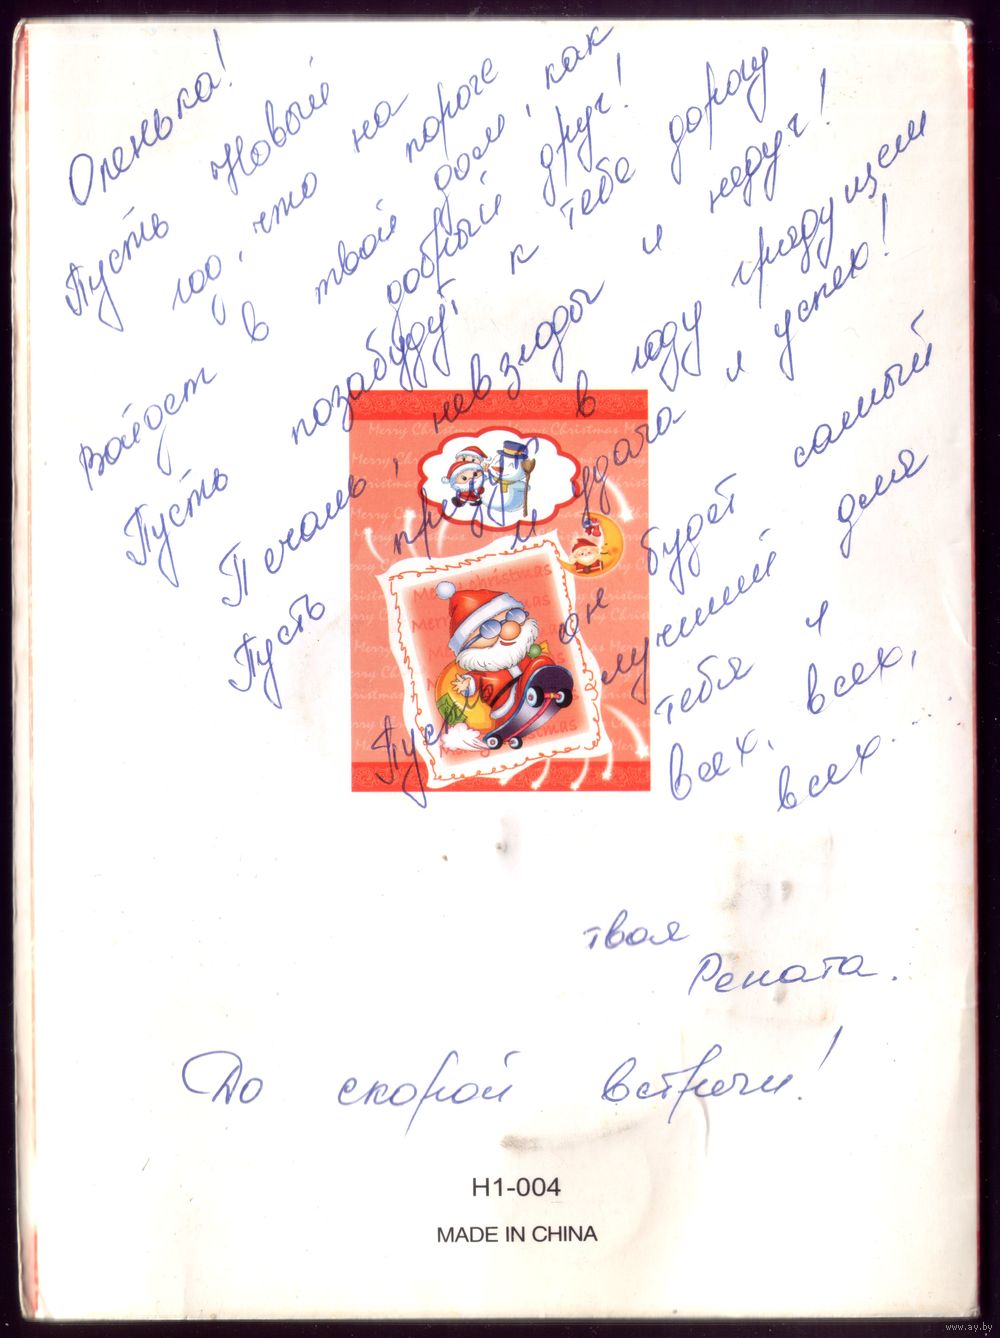 Оленька!
Пусть Новый
год, что на пороге
Войдет в твой дом, как
добрый друг!
Пусть позабудут к тебе дорогу
Печаль, невзгоды и недуг!
Пусть придут в году грядущем
и удача и успех!
Пусть он будет самый
лучший для
тебя и
всех, всех,
всех...
твоя
Рената.
До скорой встречи!
Merry Christmas
H1-004
MADE IN CHINA
www.ay.by